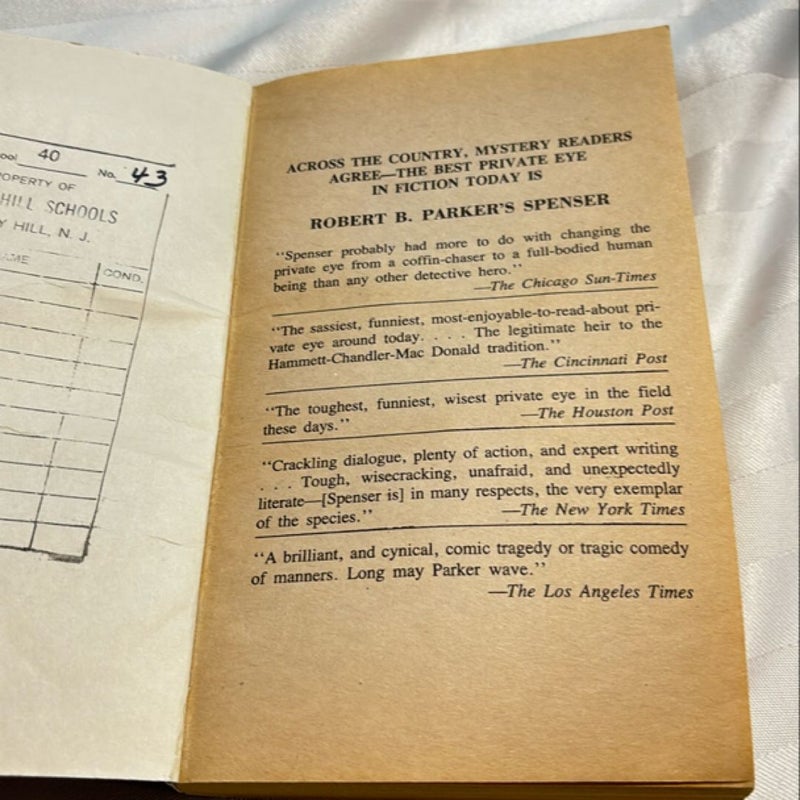 ool 40 No. 43
ROPERTY OF
HILL SCHOOLS
Y HILL, N. J.
AME COND.
ACROSS THE COUNTRY, MYSTERY READERS
AGREE—THE BEST PRIVATE EYE
IN FICTION TODAY IS
ROBERT B. PARKER'S SPENSER
“Spenser probably had more to do with changing the
private eye from a coffin-chaser to a full-bodied human
being than any other detective hero.”
—The Chicago Sun-Times
“The sassiest, funniest, most-enjoyable-to-read-about pri-
vate eye around today. . . . The legitimate heir to the
Hammett-Chandler-Mac Donald tradition.”
—The Cincinnati Post
“The toughest, funniest, wisest private eye in the field
these days.” —The Houston Post
“Crackling dialogue, plenty of action, and expert writing
. . . Tough, wisecracking, unafraid, and unexpectedly
literate—[Spenser is] in many respects, the very exemplar
of the species.” —The New York Times
“A brilliant, and cynical, comic tragedy or tragic comedy
of manners. Long may Parker wave.”
—The Los Angeles Times